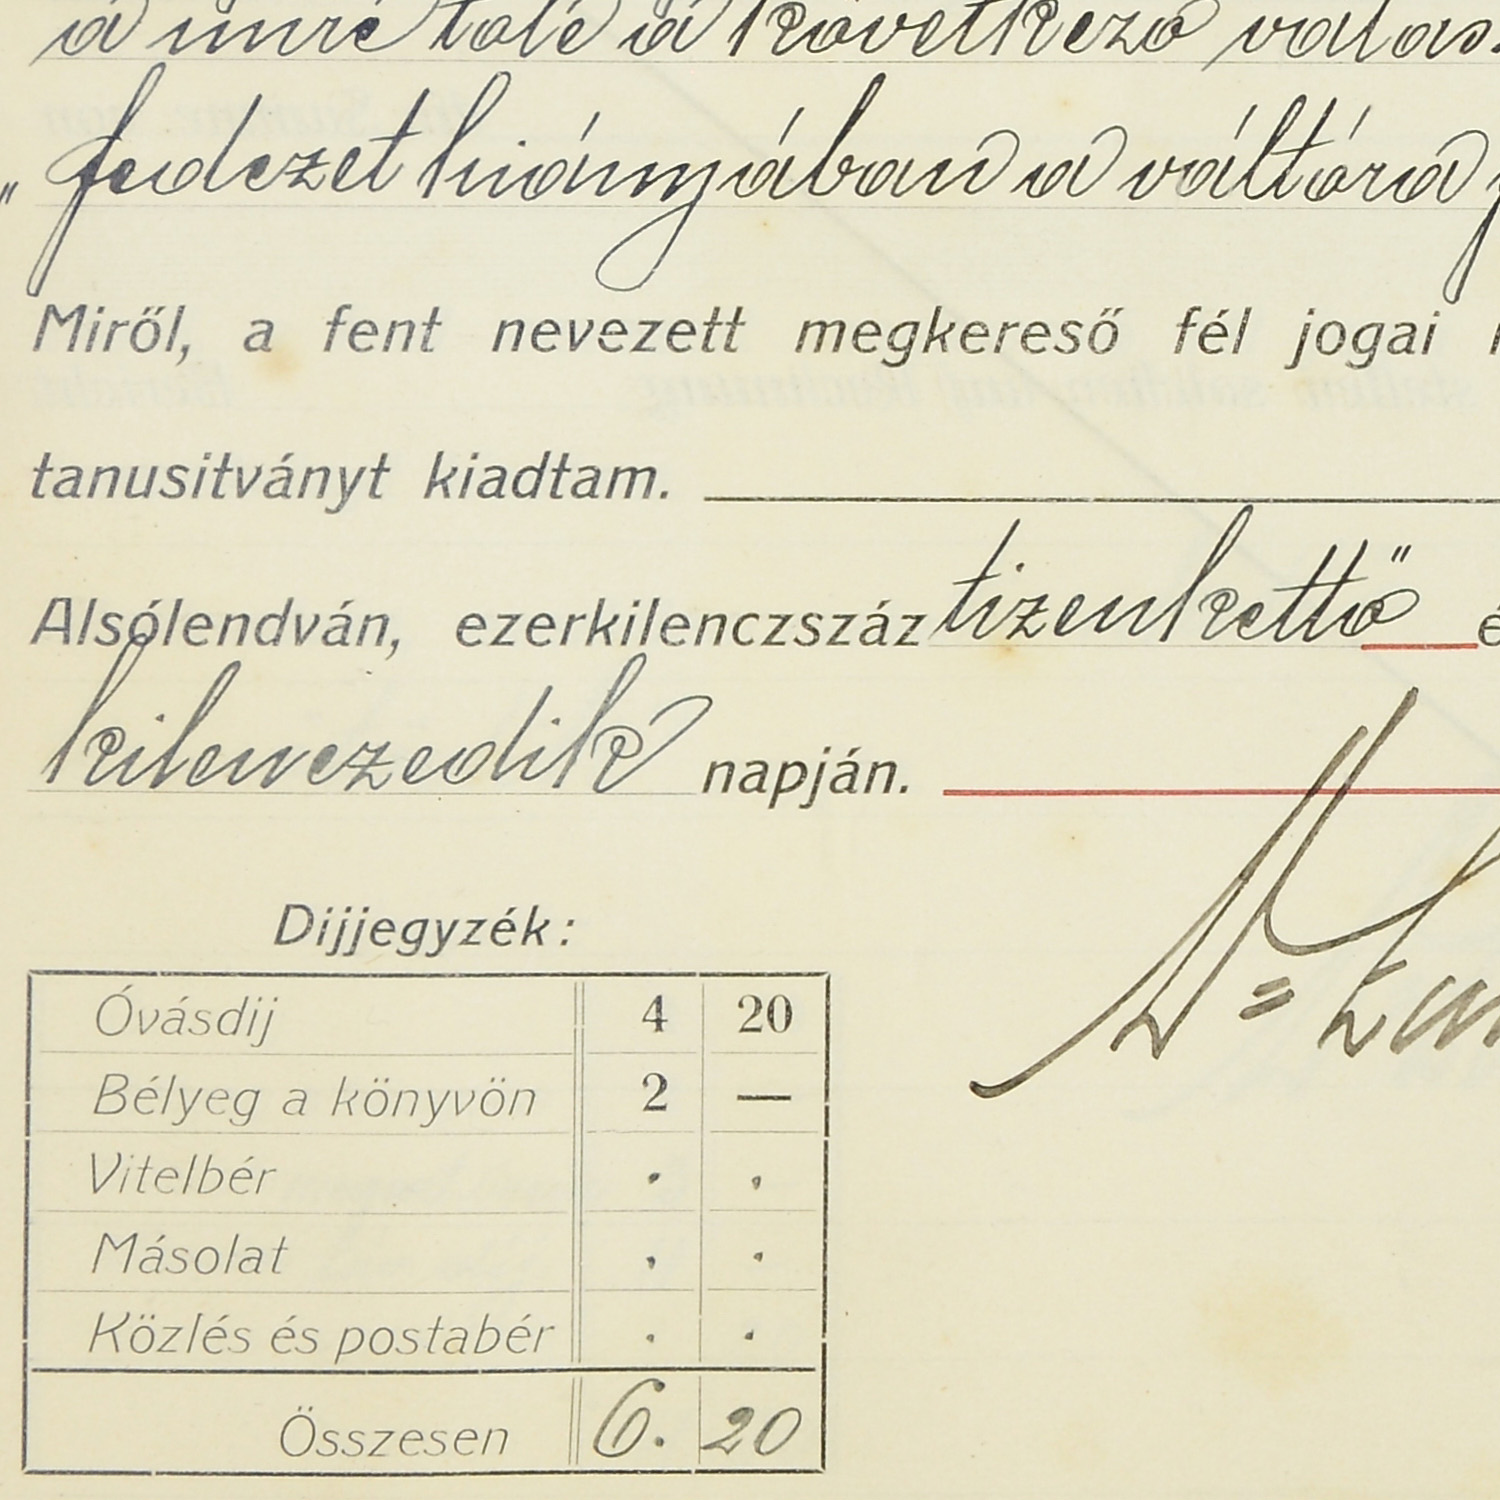 a mire tőle a következő válas
„fedezet hiányában a váltóra
Miről, a fent nevezett megkereső fél jogai
tanusitványt kiadtam.
Alsólendván, ezerkilenczszáz tizenkettő é
kilenczedik napján.
Dijjegyzék:
Óvásdij 4 20
Bélyeg a könyvön 2 —
Vitelbér . .
Másolat . .
Közlés és postabér . .
Összesen 6. 20